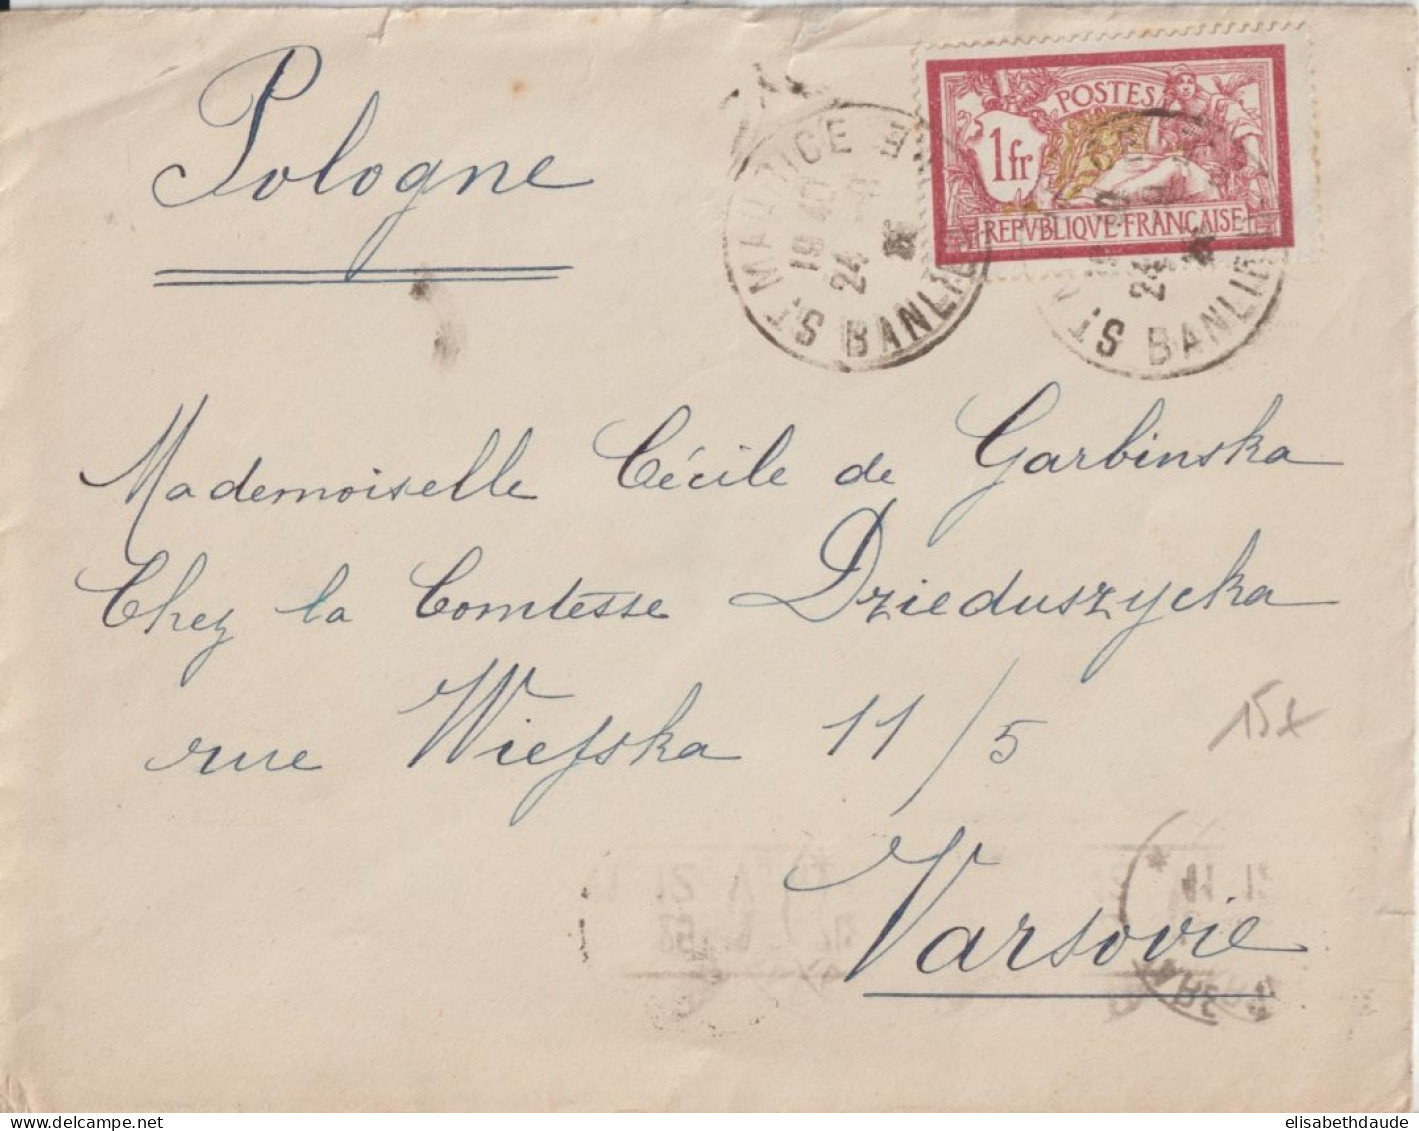 Pologne
POSTES
1fr
REPVBLIQVE·FRANÇAISE
ST MAURICE
19 40
24
BANLIEUE
24
ST BANLIEUE
Mademoiselle Cécile de Garbinska
Chez la Comtesse Dzieduszycka
rue Wiejska 11/5
15x
Varsovie
elisabethdaude